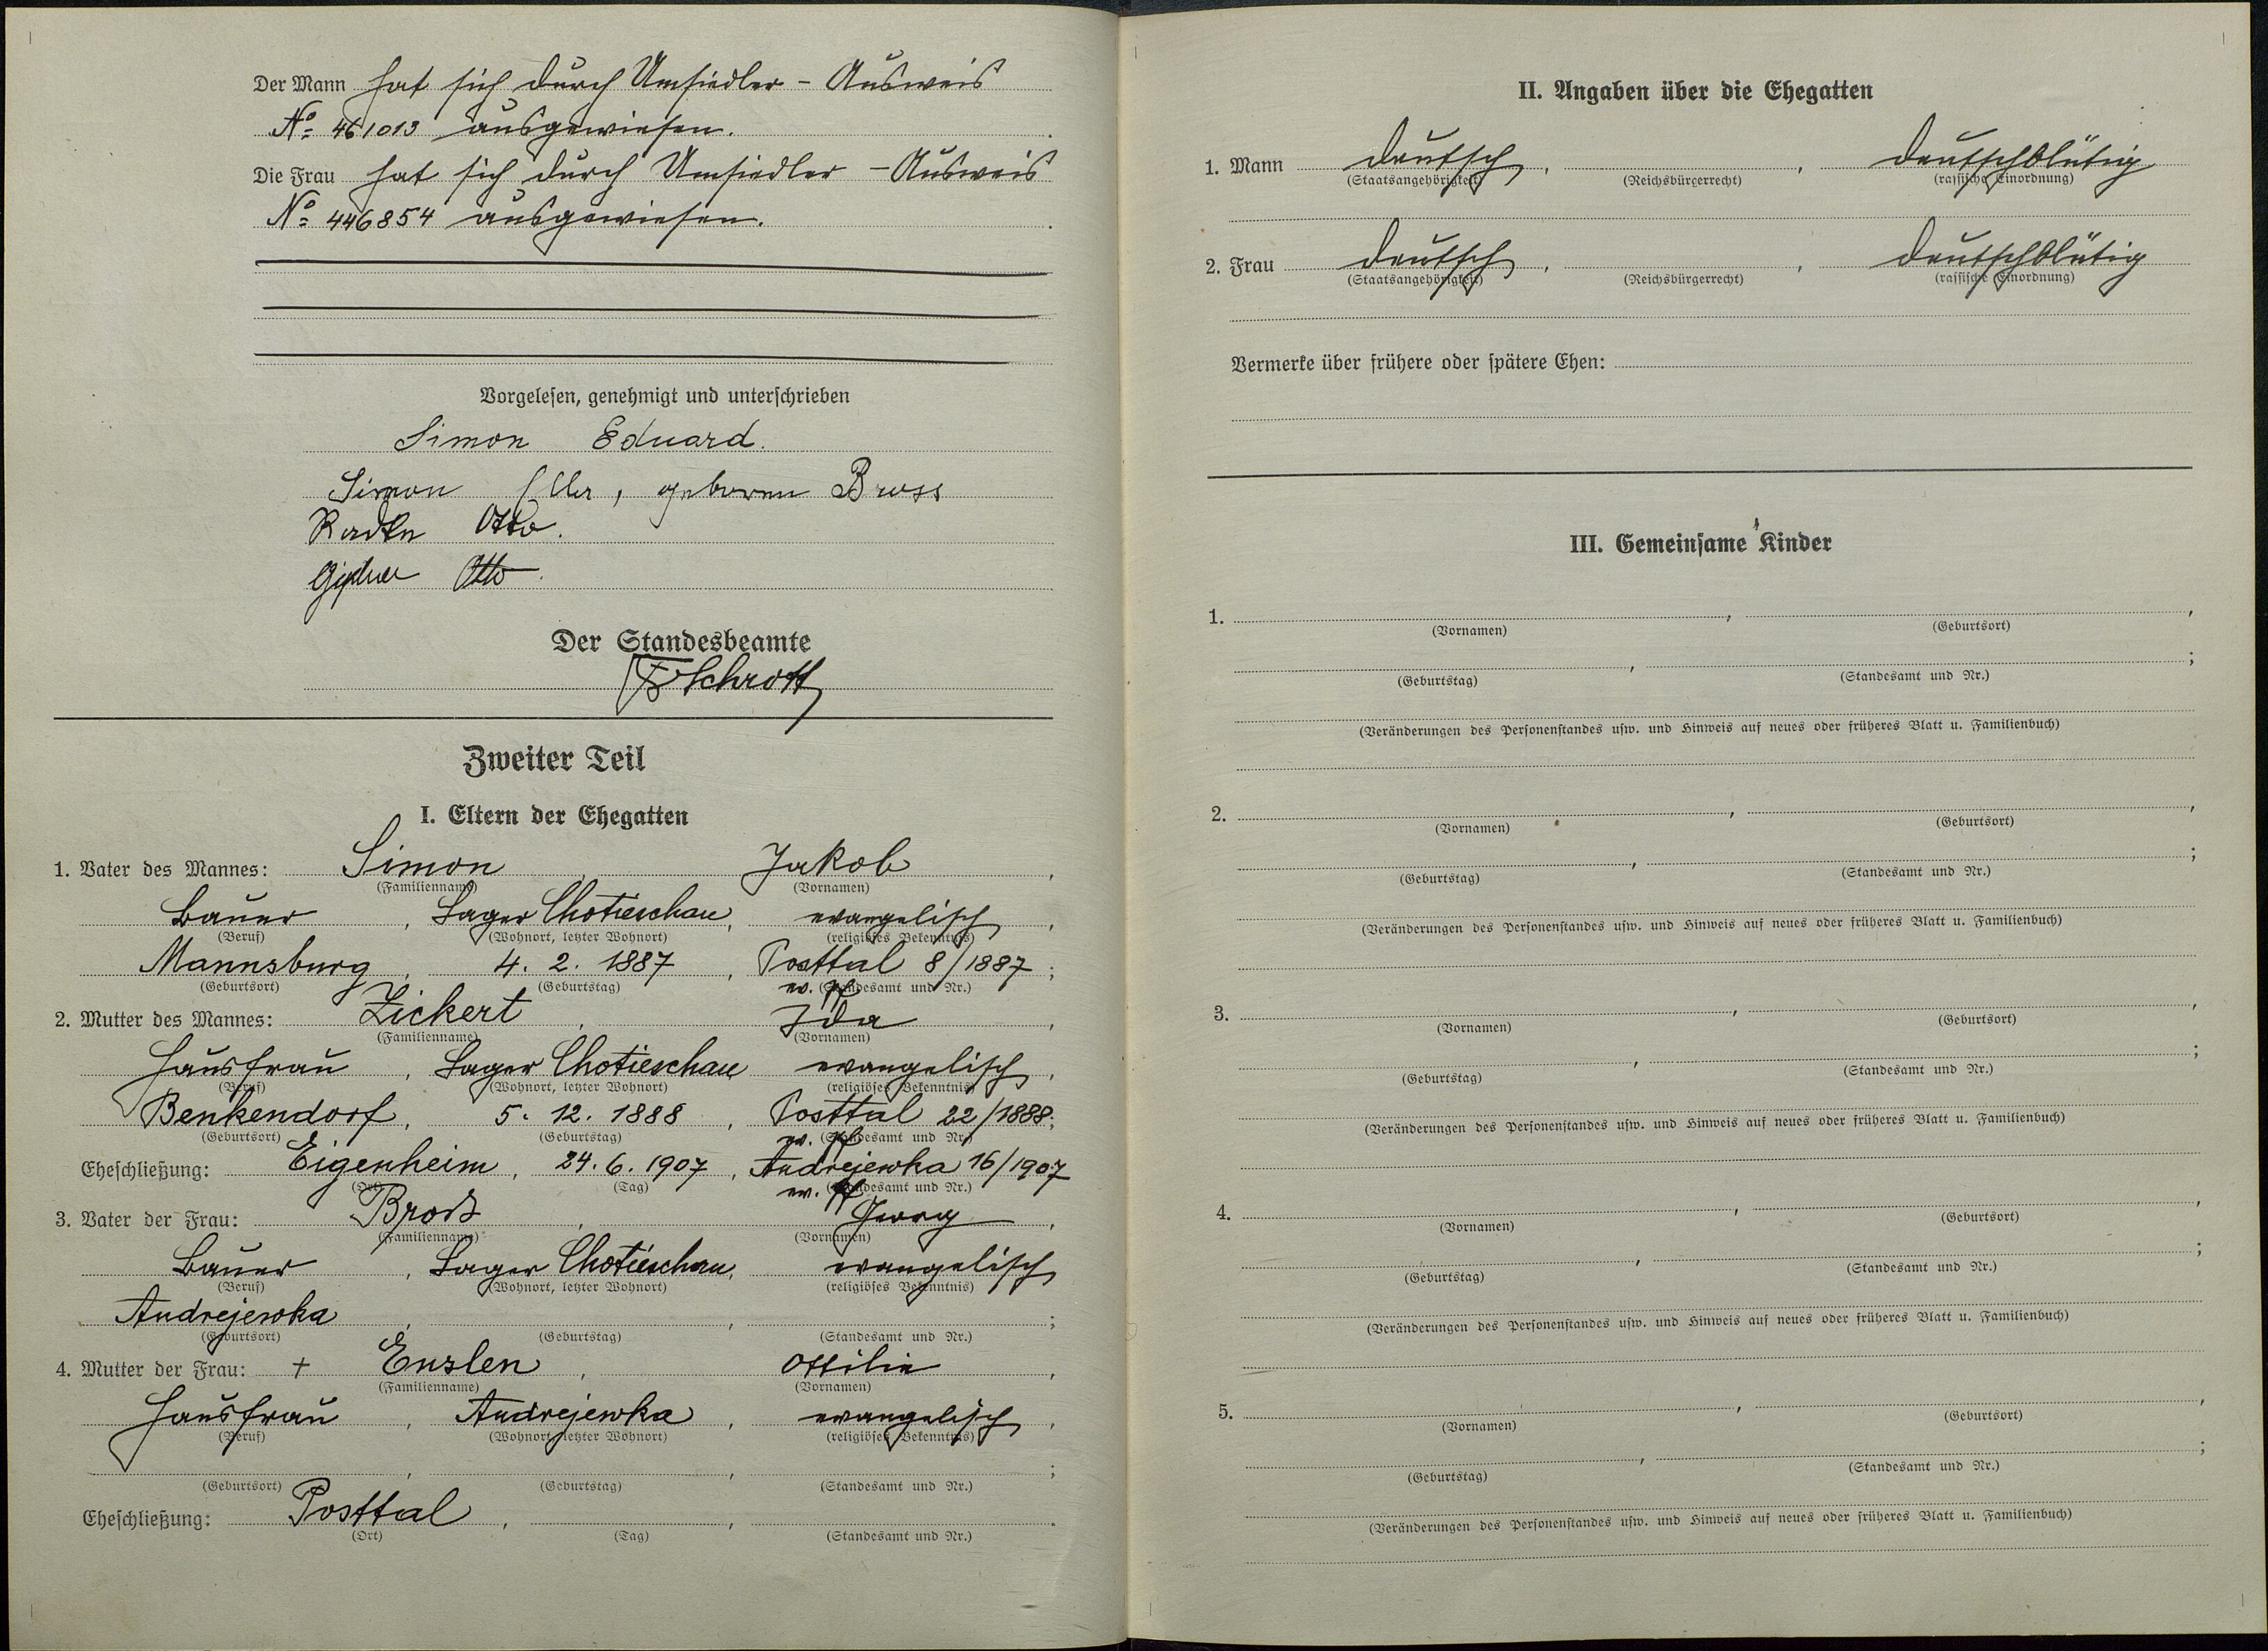 Der Mann hat sich durch Umsiedler - Ausweis
No 461013 ausgewiesen.
Die Frau hat sich durch Umsiedler - Ausweis
No 446854 ausgewiesen.
Vorgelesen, genehmigt und unterschrieben
Simon Eduard.
Simon Ella, geboren Bross
Radke Otto.
Otto
Der Standesbeamte
Schrott
Zweiter Teil
I. Eltern der Ehegatten
1. Vater des Mannes: Simon, Jakob,
(Familienname) (Vornamen)
Bauer, Lager Chotieschau, evangelisch,
(Beruf) (Wohnort, letzter Wohnort) (religiöses Bekenntnis)
Mannsburg, 4. 2. 1887, Posttal 8/1887;
(Geburtsort) (Geburtstag) ev. Pf (Standesamt und Nr.)
2. Mutter des Mannes: Zickert, Ida,
(Familienname) (Vornamen)
Hausfrau, Lager Chotieschau evangelisch,
(Beruf) (Wohnort, letzter Wohnort) (religiöses Bekenntnis)
Benkendorf, 5. 12. 1888, Posttal 22/1888;
(Geburtsort) (Geburtstag) ev. Pf (Standesamt und Nr.)
Eheschließung: Eigenheim, 24. 6. 1907, Andrejewka 16/1907
(Ort) (Tag) ev. Pf (Standesamt und Nr.)
3. Vater der Frau: Broß, Georg,
(Familienname) (Vornamen)
Bauer, Lager Chotieschau, evangelisch
(Beruf) (Wohnort, letzter Wohnort) (religiöses Bekenntnis)
Andrejewka, , ;
(Geburtsort) (Geburtstag) (Standesamt und Nr.)
4. Mutter der Frau: + Enslen, Ottilie,
(Familienname) (Vornamen)
Hausfrau, Andrejewka, evangelisch,
(Beruf) (Wohnort, letzter Wohnort) (religiöses Bekenntnis)
, , ;
(Geburtsort) (Geburtstag) (Standesamt und Nr.)
Eheschließung: Posttal, , .
(Ort) (Tag) (Standesamt und Nr.)
II. Angaben über die Ehegatten
1. Mann deutsch, , deutschblütig
(Staatsangehörigkeit) (Reichsbürgerrecht) (rassische Einordnung)
2. Frau deutsch, , deutschblütig
(Staatsangehörigkeit) (Reichsbürgerrecht) (rassische Einordnung)
Vermerke über frühere oder spätere Ehen:
III. Gemeinsame Kinder
1. , ,
(Vornamen) (Geburtsort)
, ;
(Geburtstag) (Standesamt und Nr.)
(Veränderungen des Personenstandes usw. und Hinweis auf neues oder früheres Blatt u. Familienbuch)
2. , ,
(Vornamen) (Geburtsort)
, ;
(Geburtstag) (Standesamt und Nr.)
(Veränderungen des Personenstandes usw. und Hinweis auf neues oder früheres Blatt u. Familienbuch)
3. , ,
(Vornamen) (Geburtsort)
, ;
(Geburtstag) (Standesamt und Nr.)
(Veränderungen des Personenstandes usw. und Hinweis auf neues oder früheres Blatt u. Familienbuch)
4. , ,
(Vornamen) (Geburtsort)
, ;
(Geburtstag) (Standesamt und Nr.)
(Veränderungen des Personenstandes usw. und Hinweis auf neues oder früheres Blatt u. Familienbuch)
5. , ,
(Vornamen) (Geburtsort)
, ;
(Geburtstag) (Standesamt und Nr.)
(Veränderungen des Personenstandes usw. und Hinweis auf neues oder früheres Blatt u. Familienbuch)